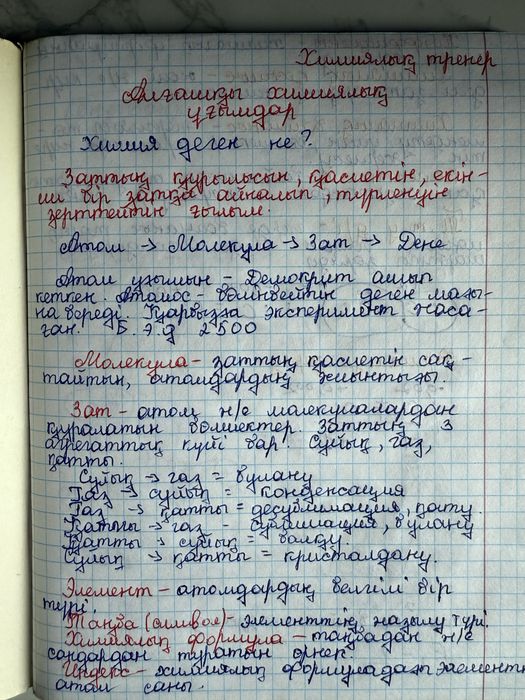 Химиялық тренер
Алғашқы химиялық
ұғымдар
Химия деген не?
Заттың құрылысын, қасиетін, екін-
ші бір затқа айналып, түрленуін
зерттейтін ғылым.
Атом → Молекула → Зат → Дене
Атом ұғымын - Демокрит ашып
кеткен. Атомос - бөлінбейтін деген мағы-
на береді. Қарбызға эксперимент жаса-
ған. Б.э.д 2500
Молекула - заттың қасиетін сақ-
тайтын, атомдардың жиынтығы.
Зат - атом н/е малекулалардан
құралатын бөлшектер. Заттың 3
агрегаттық күйі бар. Сұйық, газ,
қатты.
Сұйық → газ = булану
Газ → сұйық = конденсация
Газ → қатты = десублимация, қату.
Қатты → газ - сублимация, булану
Қатты → сұйық = балқу.
Сұйық → қатты = кристалдану.
Элемент - атомдардың белгілі бір
түрі.
Таңба (символ) - элементтің жазылу түрі.
Химиялық формула - таңбадан н/е
сандардан тұратын өрнек
Индекс - химиялық формуладағы элемент
атом саны.